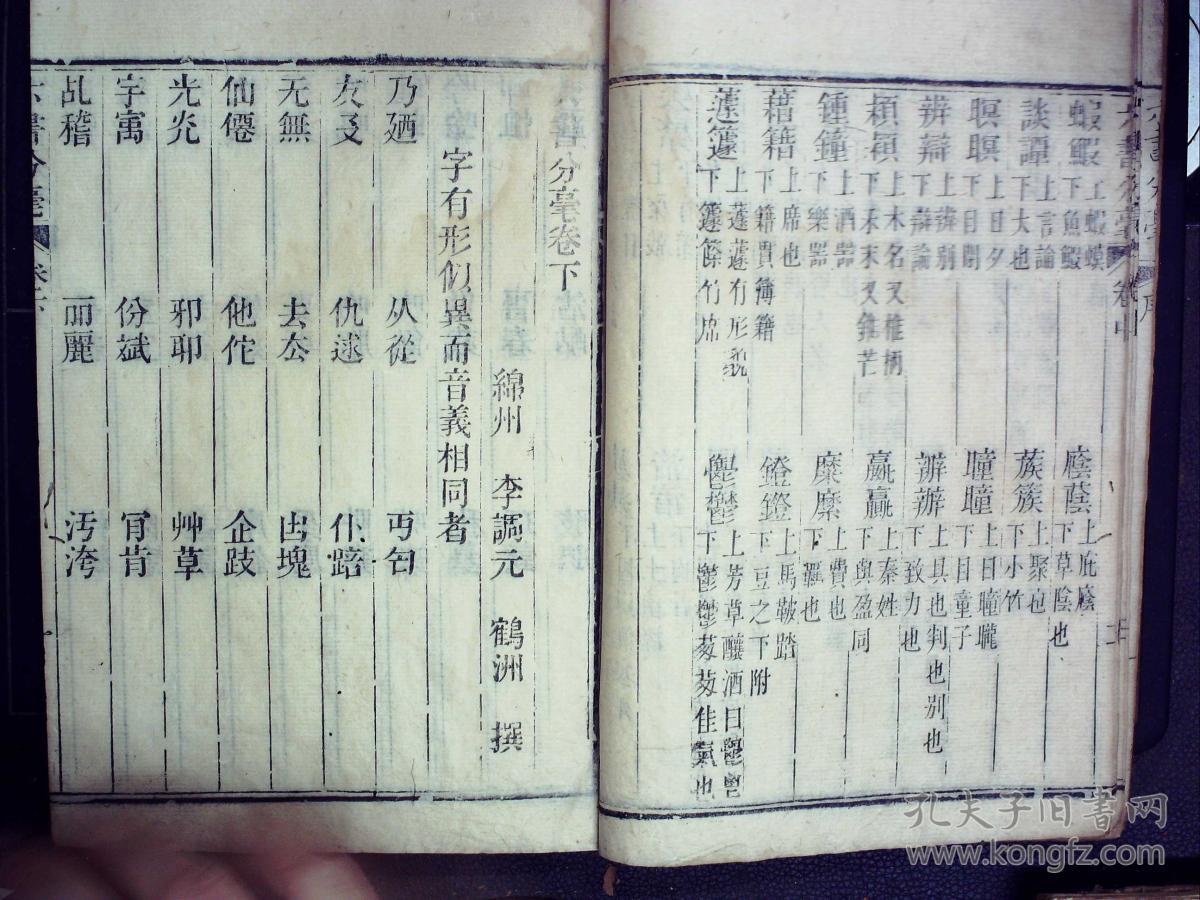 蝦鰕上蝦蟆下魚鰕
廕蔭上庇廕下草陰也
談譚上言論下大也
蔟簇上聚也下小竹
暝瞑上日夕下目閉
曈瞳上日曈曨下目童子
辨辯上辨別下辯論
辦辦上具也判也別也下致力也
穎上木名又椎柄下禾末又錐芒
嬴贏上秦姓下與盈同
鍾鐘上酒器下樂器
糜縻上費也下羈也
藉籍上席也下籍貫簿籍
鐙鐙上馬鞍踏下豆之下附
蘧籧上蘧蘧有形貌下籧篨竹席
鬱上芳草釀酒曰下鬱鬱芬芬佳氣也
六書分毫卷中
六書分毫卷下
綿州 李調元 鶴洲 撰
字有形似異而音義相同者
乃廼 从從 丏匄
友㕛 仇逑 仆踣
无無 去厺 凷塊
仙僊 他佗 企跂
光灮 邪耶 艸草
宇㝢 份斌 肎肯
乩稽 丽麗 汚洿
六書分毫 卷下
孔夫子旧书网
www.kongfz.com